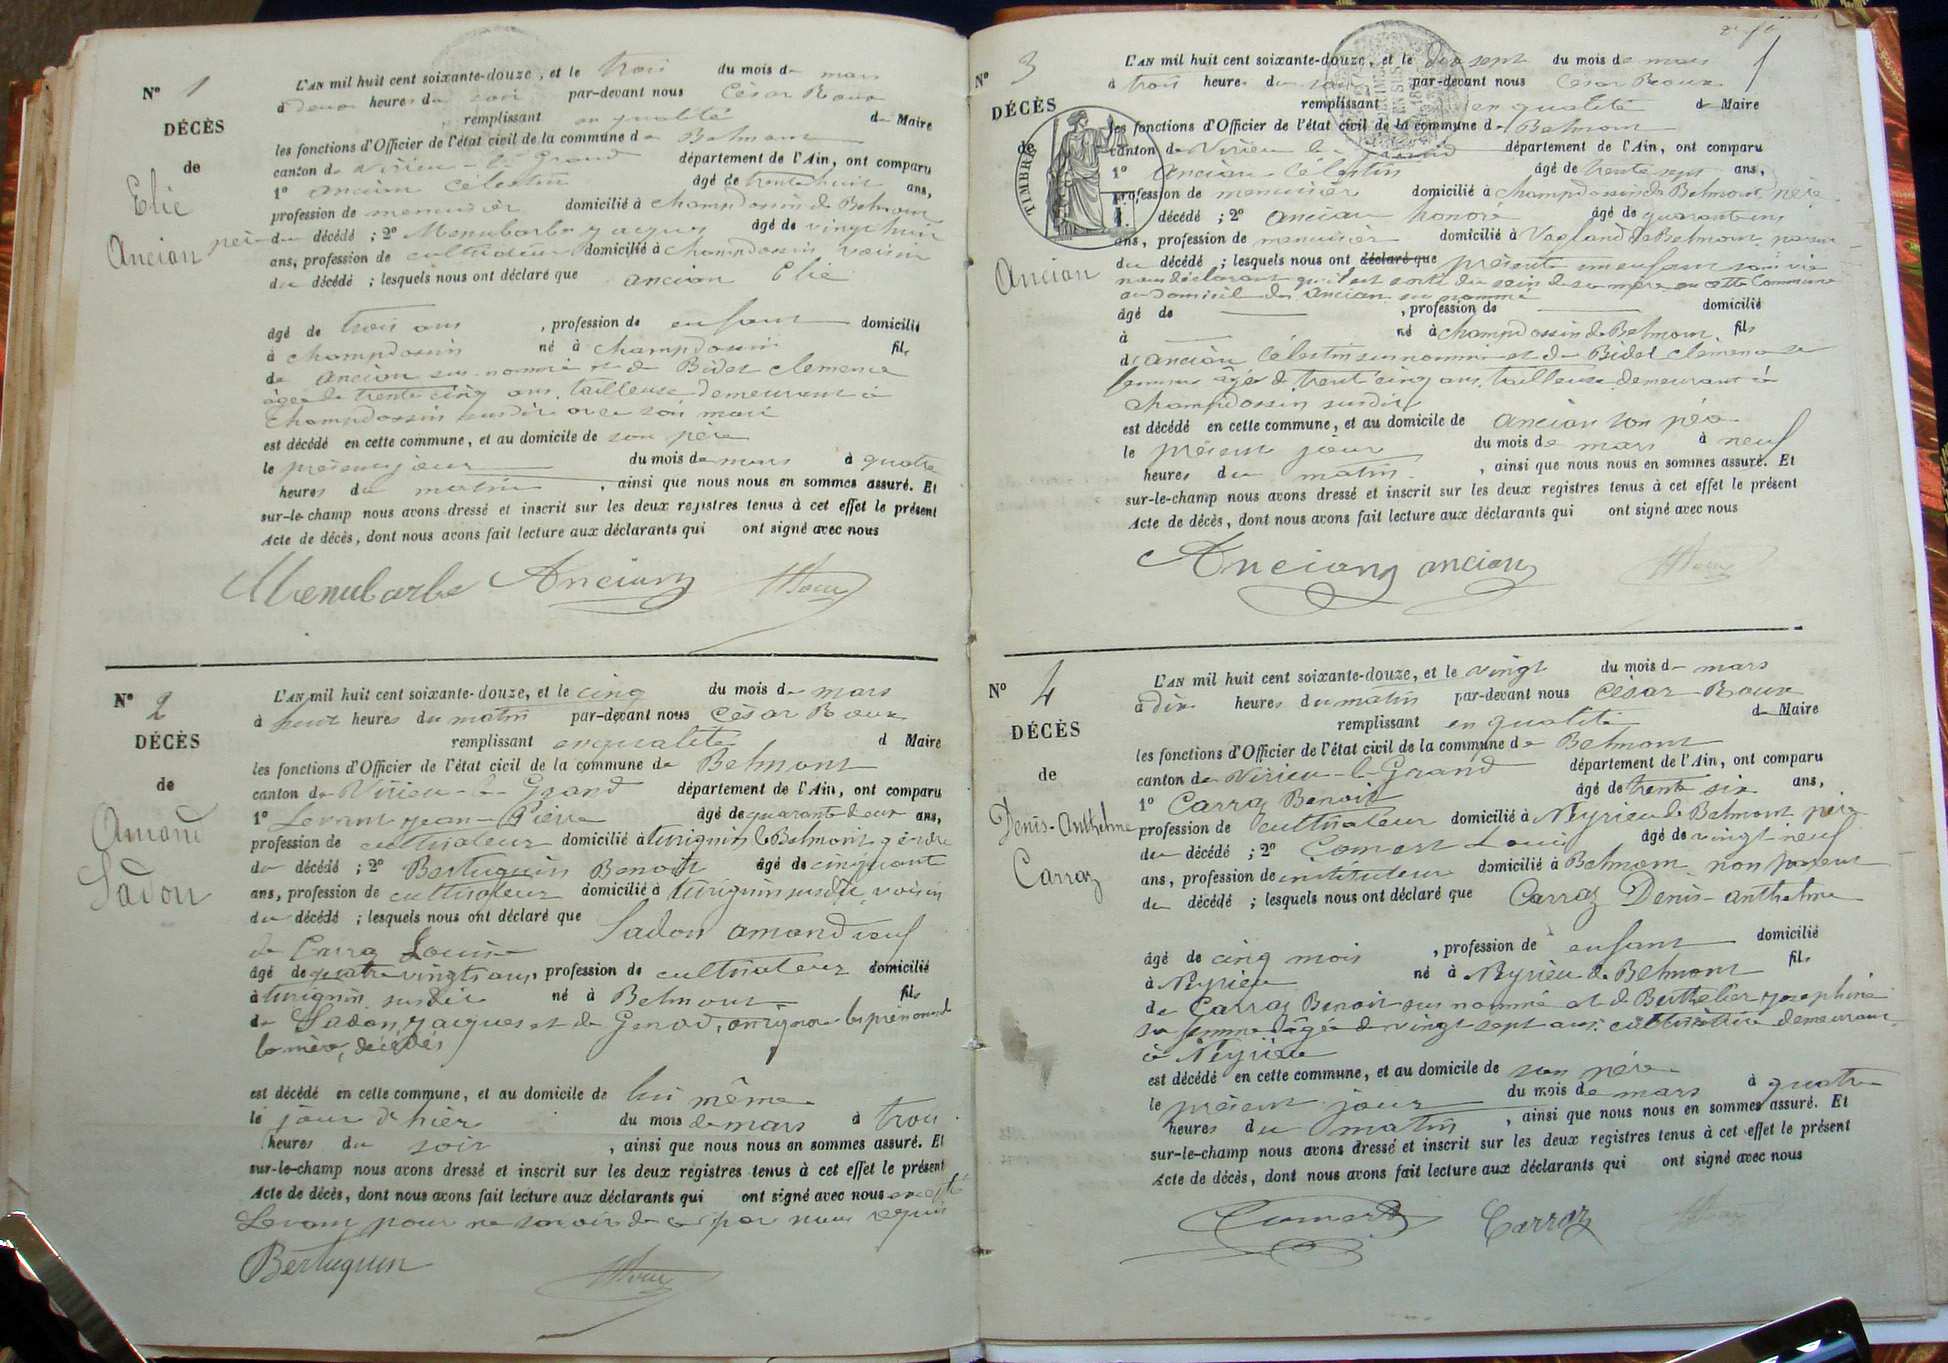 N° 1
DÉCÈS
de
Elie
Ancian
L'AN mil huit cent soixante-douze, et le trois du mois de mars
à deux heures du soir par-devant nous César Roux
remplissant en qualité de Maire
les fonctions d'Officier de l'état civil de la commune de Belmont
canton de Virieu-le-Grand département de l'Ain, ont comparu
1° Ancian Célestin âgé de trente huit ans,
profession de menuisier domicilié à Champdossin de Belmont
père du décédé ; 2° Menubarbe Jacques âgé de vingt huit
ans, profession de cultivateur domicilié à Champdossin voisin
du décédé ; lesquels nous ont déclaré que Ancian Elie
âgé de trois ans , profession de enfant domicilié
à Champdossin né à Champdossin fils
de Ancian sus-nommé et de Bidet Clemence
âgée de trente cinq ans, tailleuse demeurant à
Champdossin susdit avec son mari
est décédé en cette commune, et au domicile de son père
le présent jour du mois de mars à quatre
heures du matin , ainsi que nous nous en sommes assuré. Et
sur-le-champ nous avons dressé et inscrit sur les deux registres tenus à cet effet le présent
Acte de décès, dont nous avons fait lecture aux déclarants qui ont signé avec nous
Menubarbe Ancian Roux
N° 2
DÉCÈS
de
Amand
Sadon
L'AN mil huit cent soixante-douze, et le cinq du mois de mars
à huit heures du matin par-devant nous César Roux
remplissant en qualité d Maire
les fonctions d'Officier de l'état civil de la commune de Belmont
canton de Virieu-le-Grand département de l'Ain, ont comparu
1° Levant Jean-Pierre âgé de quarante deux ans,
profession de cultivateur domicilié à Turignin de Belmont gendre
du décédé ; 2° Bertuguin Benoit âgé de cinquante
ans, profession de cultivateur domicilié à Turignin susdit, voisin
du décédé ; lesquels nous ont déclaré que Sadon Amand veuf
de Carra Louise
âgé de quatre vingts ans, profession de cultivateur domicilié
à Turignin susdit né à Belmont fils
de Sadon Jacques et de Genod, on ignore les prénoms de
la mère, décédés
est décédé en cette commune, et au domicile de lui même
le jour d'hier du mois de mars à trois
heures du soir , ainsi que nous nous en sommes assuré. Et
sur-le-champ nous avons dressé et inscrit sur les deux registres tenus à cet effet le présent
Acte de décès, dont nous avons fait lecture aux déclarants qui ont signé avec nous excepté
Levant pour ne savoir de ce par nous requis
Bertuguin Roux
N° 3
DÉCÈS
de
TIMBRE
Ancian
L'AN mil huit cent soixante-douze, et le dix sept du mois de mars
à trois heures du soir par-devant nous César Roux
remplissant en qualité de Maire
les fonctions d'Officier de l'état civil de la commune de Belmont
canton de Virieu le Grand département de l'Ain, ont comparu
1° Ancian Célestin âgé de trente sept ans,
profession de menuisier domicilié à Champdossin de Belmont père
décédé ; 2° Ancian honoré âgé de quarante un
ans, profession de menuisier domicilié à Vogland de Belmont, parent
du décédé ; lesquels nous ont déclaré que présenté un enfant sans vie
nous déclarant qu'il est sorti du sein de sa mère en cette Commune
au domicile de Ancian sus nommé
âgé de , profession de domicilié
à né à Champdossin de Belmont, fils
d'Ancian Célestin susnommé et de Bidet Clemence sa
femme âgée de trente cinq ans, tailleuse demeurant à
Champdossin susdit
est décédé en cette commune, et au domicile de Ancian son père
le présent jour du mois de mars à neuf
heures du matin , ainsi que nous nous en sommes assuré. Et
sur-le-champ nous avons dressé et inscrit sur les deux registres tenus à cet effet le présent
Acte de décès, dont nous avons fait lecture aux déclarants qui ont signé avec nous
Ancian ancian Roux
N° 4
DÉCÈS
de
Denis-Anthelme
Carraz
L'AN mil huit cent soixante-douze, et le vingt du mois de mars
à dix heures du matin par-devant nous César Roux
remplissant en qualité de Maire
les fonctions d'Officier de l'état civil de la commune de Belmont
canton de Virieu-le-Grand département de l'Ain, ont comparu
1° Carraz Benoit âgé de trente six ans,
profession de cultivateur domicilié à Neyrieu de Belmont père
du décédé ; 2° Comest Louis âgé de vingt neuf
ans, profession de instituteur domicilié à Belmont, non parent
du décédé ; lesquels nous ont déclaré que Carraz Denis-Anthelme
âgé de cinq mois , profession de enfant domicilié
à Neyrieu né à Neyrieu de Belmont fils
de Carraz Benoit sus nommé et de Berthelier Josephine
sa femme âgée de vingt sept ans, cultivatrice demeurant
à Neyrieu
est décédé en cette commune, et au domicile de son père
le présent jour du mois de mars à quatre
heures du matin , ainsi que nous nous en sommes assuré. Et
sur-le-champ nous avons dressé et inscrit sur les deux registres tenus à cet effet le présent
Acte de décès, dont nous avons fait lecture aux déclarants qui ont signé avec nous
Carraz